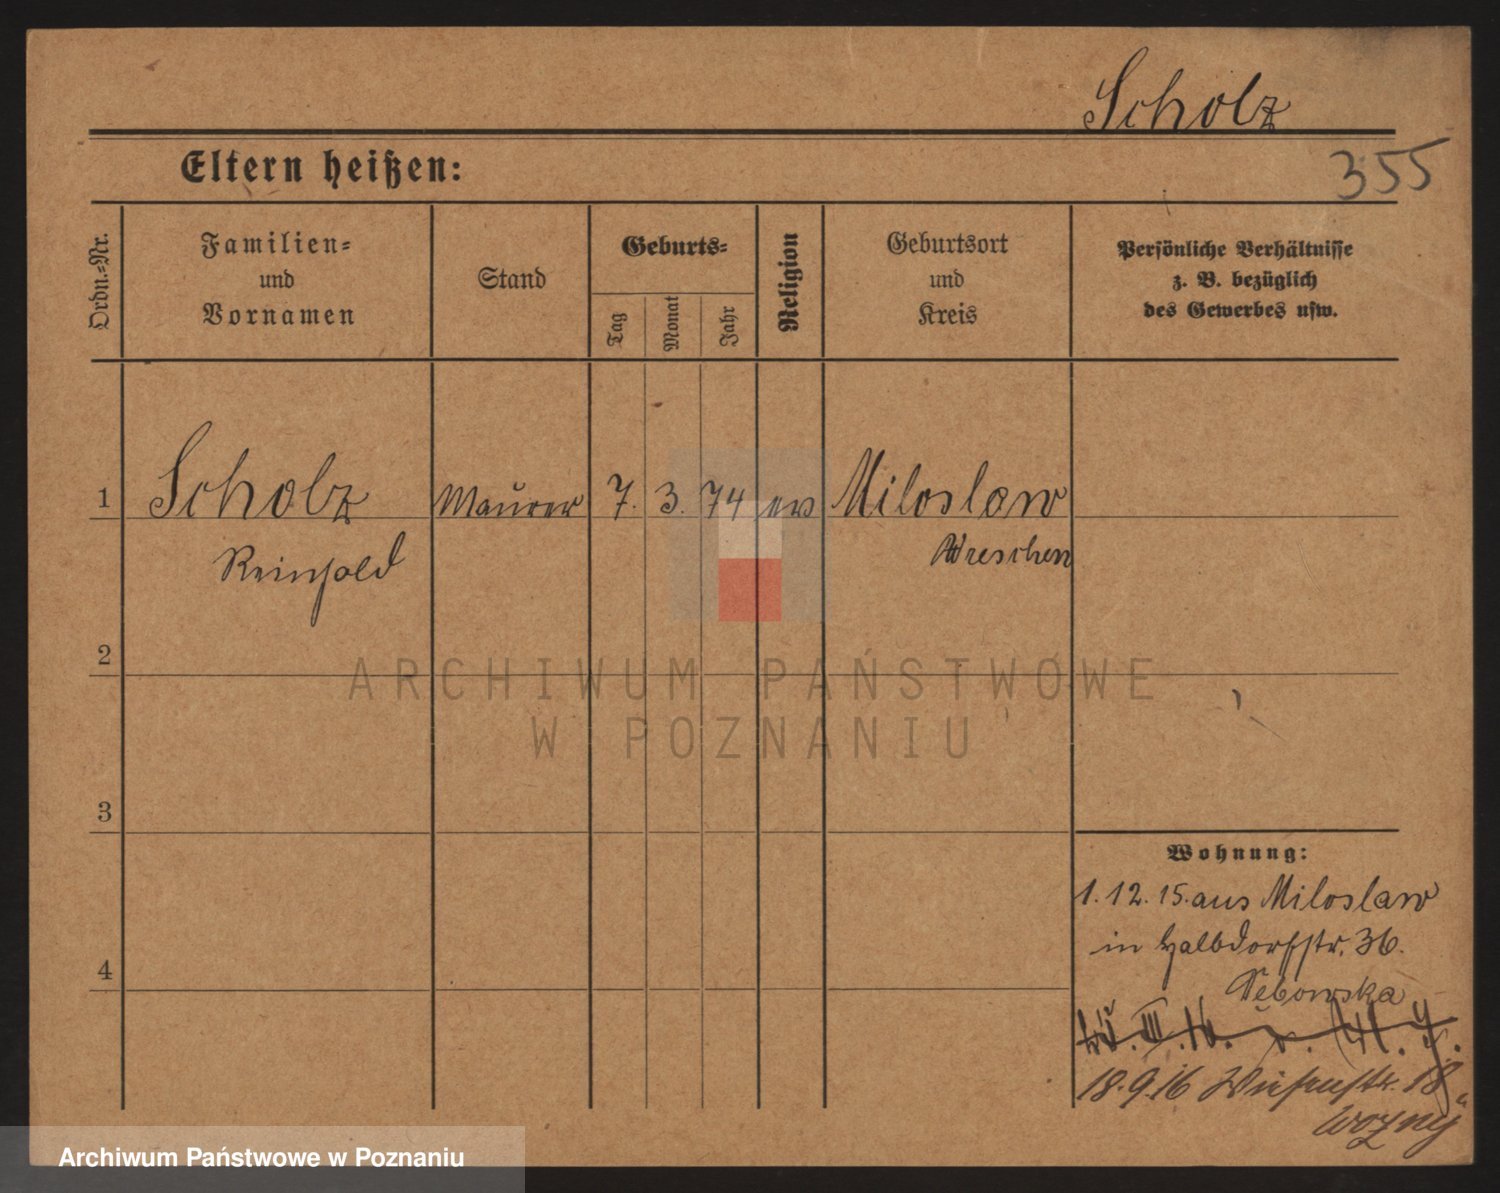 Scholz
Eltern heißen:
355
Ordn.-Nr.
Familien-
und
Vornamen
Stand
Geburts-
Tag
Monat
Jahr
Religion
Geburtsort
und
Kreis
Persönliche Verhältnisse
z. B. bezüglich
des Gewerbes usw.
1 Scholz Maurer 7. 3. 74 ev Miloslaw
Reinhold Wreschen
2
ARCHIWUM PAŃSTWOWE
W POZNANIU
3
Wohnung:
1. 12. 15. aus Miloslaw
in Halbdorfstr. 36.
4
18.9.16 18
Wozny
Archiwum Państwowe w Poznaniu